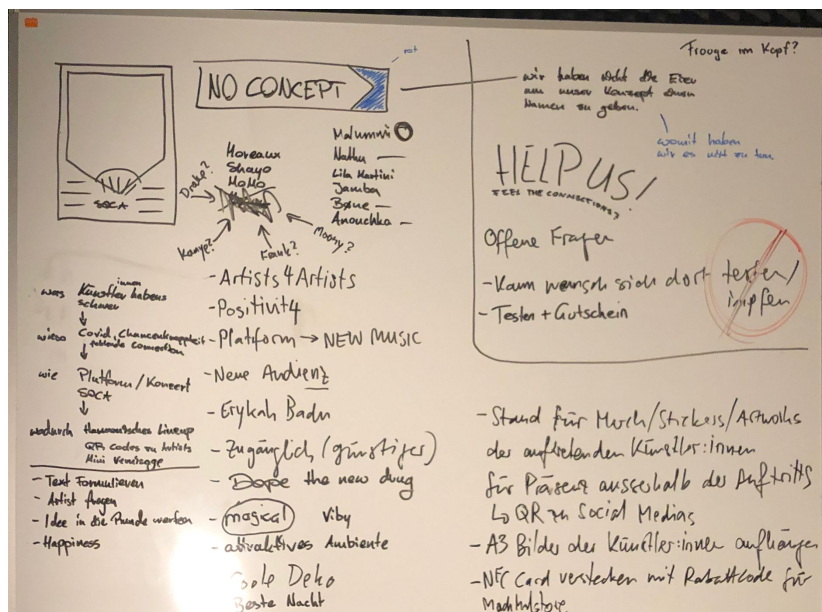 Frooge im Kopf?
rot
NO CONCEPT
wir haben nicht die Eier
um unser Konzept einen
Namen zu geben.
womit haben
wir es nicht zu tun
SOCA
Moreaux
Shayo
MoMo
Drake?
Kanye?
Frank?
Malummí
Nathu
Lila Martini
Jamba
Bøne
Anouchka
HELP US!
FEEL THE CONNECTIONS?
Offene Fragen
- Kann mensch sich dort testen/
impfen
- Testen + Gutschein
was Künstler innen habens
schwer
wieso Covid, Chancenknappheit
fehlende connection
wie Platform/Konzert
SOCA
wodurch Harmonisches Lineup
QR Codes zu Artists
Mini Vernisage
- Text Formulieren
- Artist fragen
- Idee in die Runde werfen
- Happiness
- Artists 4 Artists
- Positivit4
- Platform → NEW MUSIC
- Neue Audienz
- Erykah Badu
- Zugänglich (günstiger)
- Dope the new drug
- magical Viby
- attraktives Ambiente
Coole Deko
Beste Nacht
- Stand für Merch/Stickers/Artworks
der auftretenden Künstler:innen
für Präsenz ausserhalb der Auftritts
↳ QR zu Social Medias
- A3 Bilder der Künstler:innen aufhängen
- NFC Card verstecken mit Rabattcode für